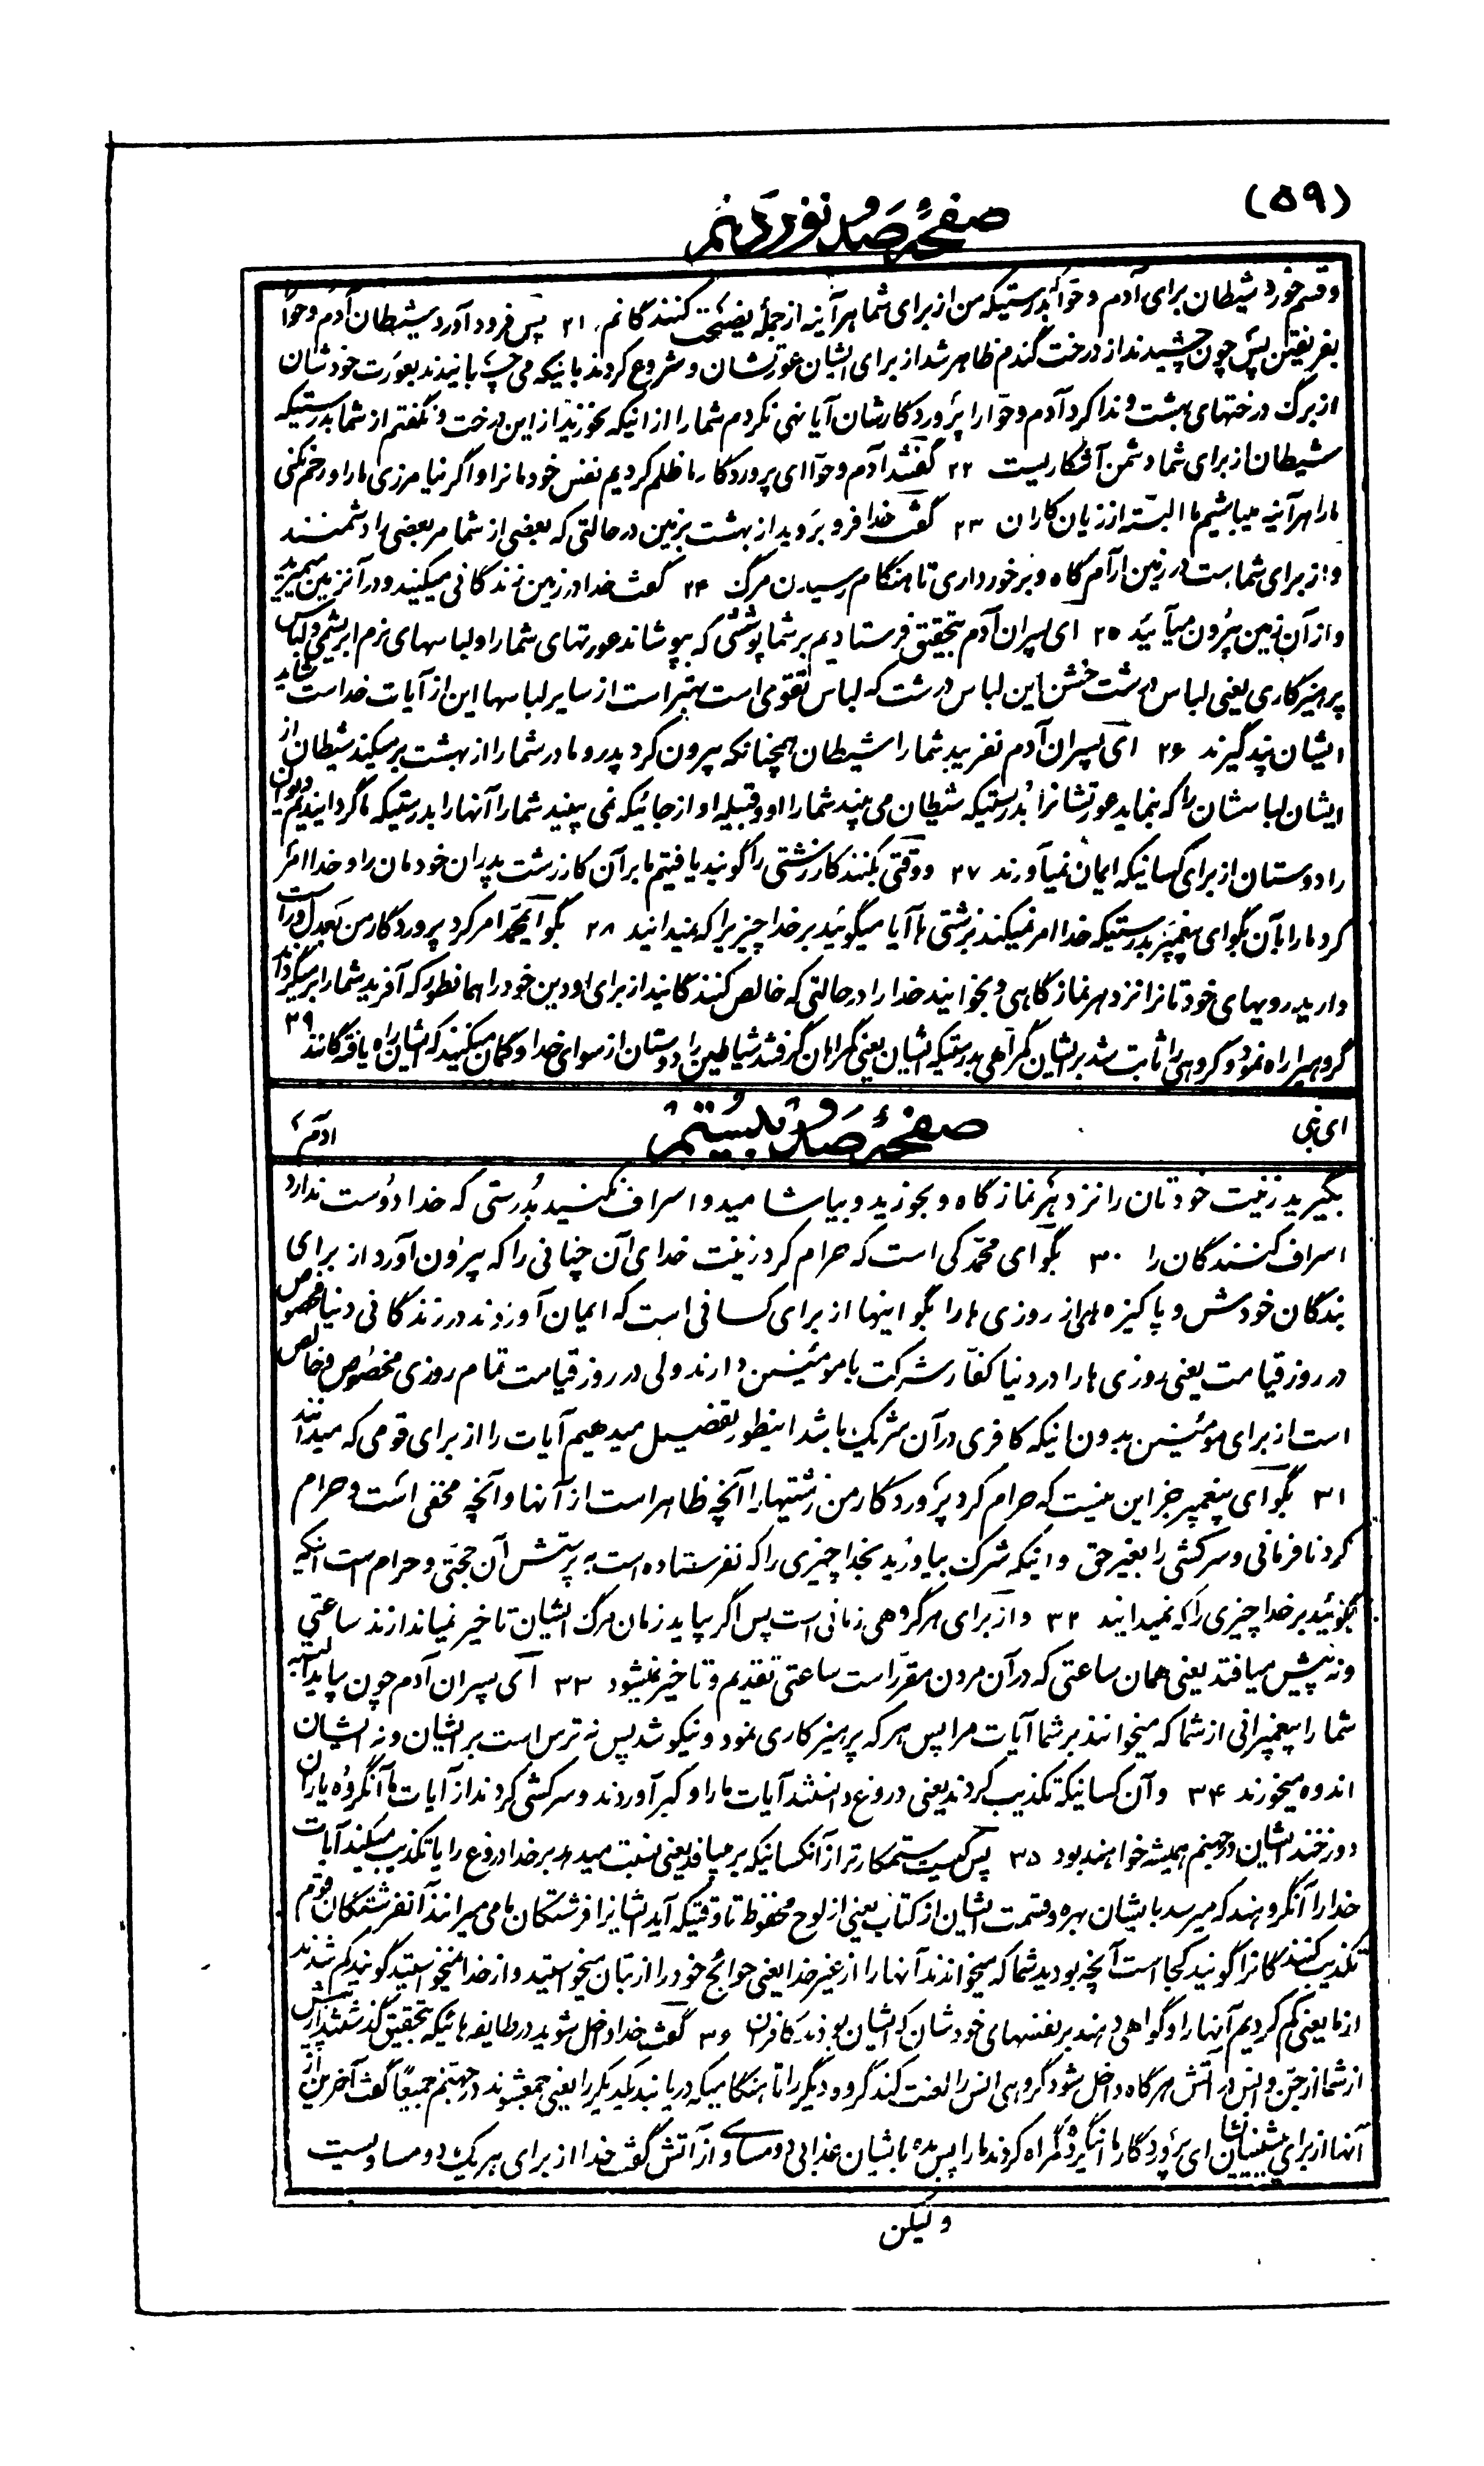 (۵۹)
صفحهٔ صد و نوزدهم
و قسم خورد شیطان برای آدم و حوّا بدرستیکه من از برای شما هرآینه از جملهٔ نصیحت کنندگانم ۲۱ پس فرود آورد شیطان آدم و حوّا
بفریفتن پس چون چشیدند از درخت گندم ظاهر شد از برای ایشان عورتشان و شروع کردند باینکه می چسبانیدند بعورت خودشان
از برگ درختهای بهشت و ندا کرد آدم و حوّا را پروردگارشان آیا نهی نکردم شما را از اینکه بخورید از این درخت و نگفتم از شما بدرستیکه
شیطان از برای شما دشمن آشکاریست ۲۲ گفتند آدم و حوّا ای پروردگار ما ظلم کردیم نفس خودمانرا و اگر نیامرزی ما را و رحم نکنی
ما را هرآینه میباشیم ما البتّه از زیان کاران ۲۳ گفت خدا فرو بروید از بهشت بزمین در حالتی که بعضی از شما مر بعضی را دشمنند
و از برای شماست در زمین آرام گاه و برخورداری تا هنگام رسیدن مرگ ۲۴ گفت خدا در زمین زندگانی میکنید و در آن زمین میمیرید
و از آن زمین بیرون میآئید ۲۵ ای پسران آدم بتحقیق فرستادیم بر شما پوششی که بپوشاند عورتهای شما را و لباسهای نرم ابریشمی و لباس
پرهیزکاری یعنی لباس درشت خشن این لباس درشت که لباس تقوی است بهتر است از سایر لباسها این از آیات خداست شاید
ایشان پند گیرند ۲۶ ای پسران آدم نفریبد شما را شیطان همچنانکه بیرون کرد پدر و مادر شما را از بهشت برمیکند شیطان از
ایشان لباسشان را که بنماید عورتشانرا بدرستیکه شیطان می بیند شما را او و قبیله او از جائیکه نمی بینید شما آنها را بدرستیکه ما گردانیدیم دیوان
را دوستان از برای کسانیکه ایمان نمیآورند ۲۷ و وقتی بکنند کار زشتی را گویند یافتیم ما بر آن کار زشت پدران خودمان را و خدا امر
کرد ما را بآن بگو ای پیغمبر بدرستیکه خدا امر نمیکند بزشتی ها آیا میگوئید بر خدا چیزیرا که نمیدانید ۲۸ بگو ای محمّد امر کرد پروردگار من بعدل و راست
دارید رویهای خودتانرا نزد هر نماز گاهی و بخوانید خدا را در حالتی که خالص کنندگانید از برای او دین خود را همانطور که آفرید شما را برمیگرداند
گروهیرا راه نمود و گروهی را ثابت شد بر ایشان گمراهی بدرستیکه ایشان یعنی گمراهان گرفتند شیاطین را دوستان از سوای خدا و گمان میکنند که ایشان راه یافتگانند ۲۹
ای بنی
صفحهٔ صد و بیستم
آدم
بگیرید زینت خودتان را نزد هر نماز گاه و بخورید و بیاشامید و اسراف نکنید بدرستی که خدا دوست ندارد
اسراف کنندگان را ۳۰ بگو ای محمّد کی است که حرام کرد زینت خدای آن چنانی را که بیرون آورد از برای
بندگان خودش و پاکیزه های از روزی ها را بگو اینها از برای کسانی است که ایمان آوردند در زندگانی دنیا مخصوص
در روز قیامت یعنی روزی ها را در دنیا کفّار شرکت با مومنین دارند ولی در روز قیامت تمام روزی مخصوص و خالص
است از برای مؤمنین بدون اینکه کافری در آن شریک باشد اینطور تفصیل میدهیم آیات را از برای قومی که میدانند
۳۱ بگو ای پیغمبر جز این نیست که حرام کرد پروردگار من زشتیها را آنچه ظاهر است از آنها و آنچه مخفی است و حرام
کرد نافرمانی و سرکشی را بغیر حق و اینکه شرک بیاورید بخدا چیزی را که نفرستاده است به پرستش آن حجّتی و حرام است اینکه
بگوئید بر خدا چیزی را که نمیدانید ۳۲ و از برای هر گروهی زمانی است پس اگر بیاید زمان مرگ ایشان تاخیر نمیاندازند ساعتی
و نه پیش میافتد یعنی همان ساعتی که در آن مردن مقرّر است ساعتی تقدیم و تاخیر نمیشود ۳۳ ای پسران آدم چون بیاید البته
شما را پیغمبرانی از شما که میخوانند بر شما آیات مرا پس هر که پرهیزکاری نمود و نیکو شد پس نه ترس است بر ایشان و نه ایشان
اندوه میخورند ۳۴ و آن کسانیکه تکذیب کردند یعنی دروغ دانستند آیات ما را و کبر آوردند و سرکشی کردند از آیات ما آنگروه یاران
دوزخند ایشان در جهنم همیشه خواهند بود ۳۵ پس کیست ستمکارتر از آنکسانیکه بر میافد یعنی نسبت میدهد بر خدا دروغ را یا تکذیب میکند آیات
خدا را آنگروهند که میرسد بایشان بهره و قسمت ایشان از کتاب یعنی از لوح محفوظ تا وقتیکه آید ایشانرا فرشتگان ما می میرانند آنفرشتگان قوم
تکذیب کنندگانرا گویند کجا است آنچه بودید شما که میخواندند آنها را از غیر خدا یعنی حوائج خود را از بتان میخواستید و از خدا نمیخواستید گویند گم شدند
از ما یعنی گم کردیم آنها را و گواهی دهند بر نفسهای خودشان که ایشان بودند کافران ۳۶ گفت خدا داخل شوید در طایفه هائیکه بتحقیق گذشتند از پیش
از شما از جنّ و انس در آتش هر گاه داخل شود گروهی انس را لعنت کند گروه دیگر را تا هنگامیکه دریابند یکدیگر را یعنی جمعشوند در جهنّم جمیعًا گفت آخرین از
آنها از برای پیشینیانشان ای پروردگار ما اینگروه گمراه کردند ما را پس بده بایشان عذابی دو مساوی از آتش گفت خدا از برای هر یک دو مساویست
و لیکن